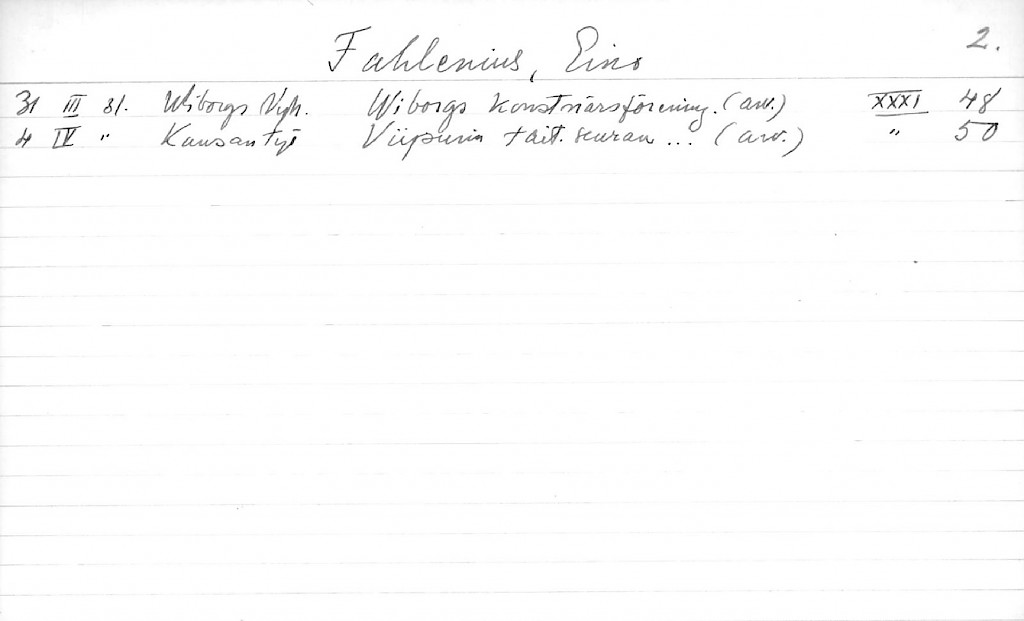 Fahlenius, Eino 2.
31 III 31. Wiborgs Nyh. Wiborgs konstnärsförening. (arv.) XXXI 48
4 IV " Kansan työ Viipurin tait. seuran ... (arv.) " 50